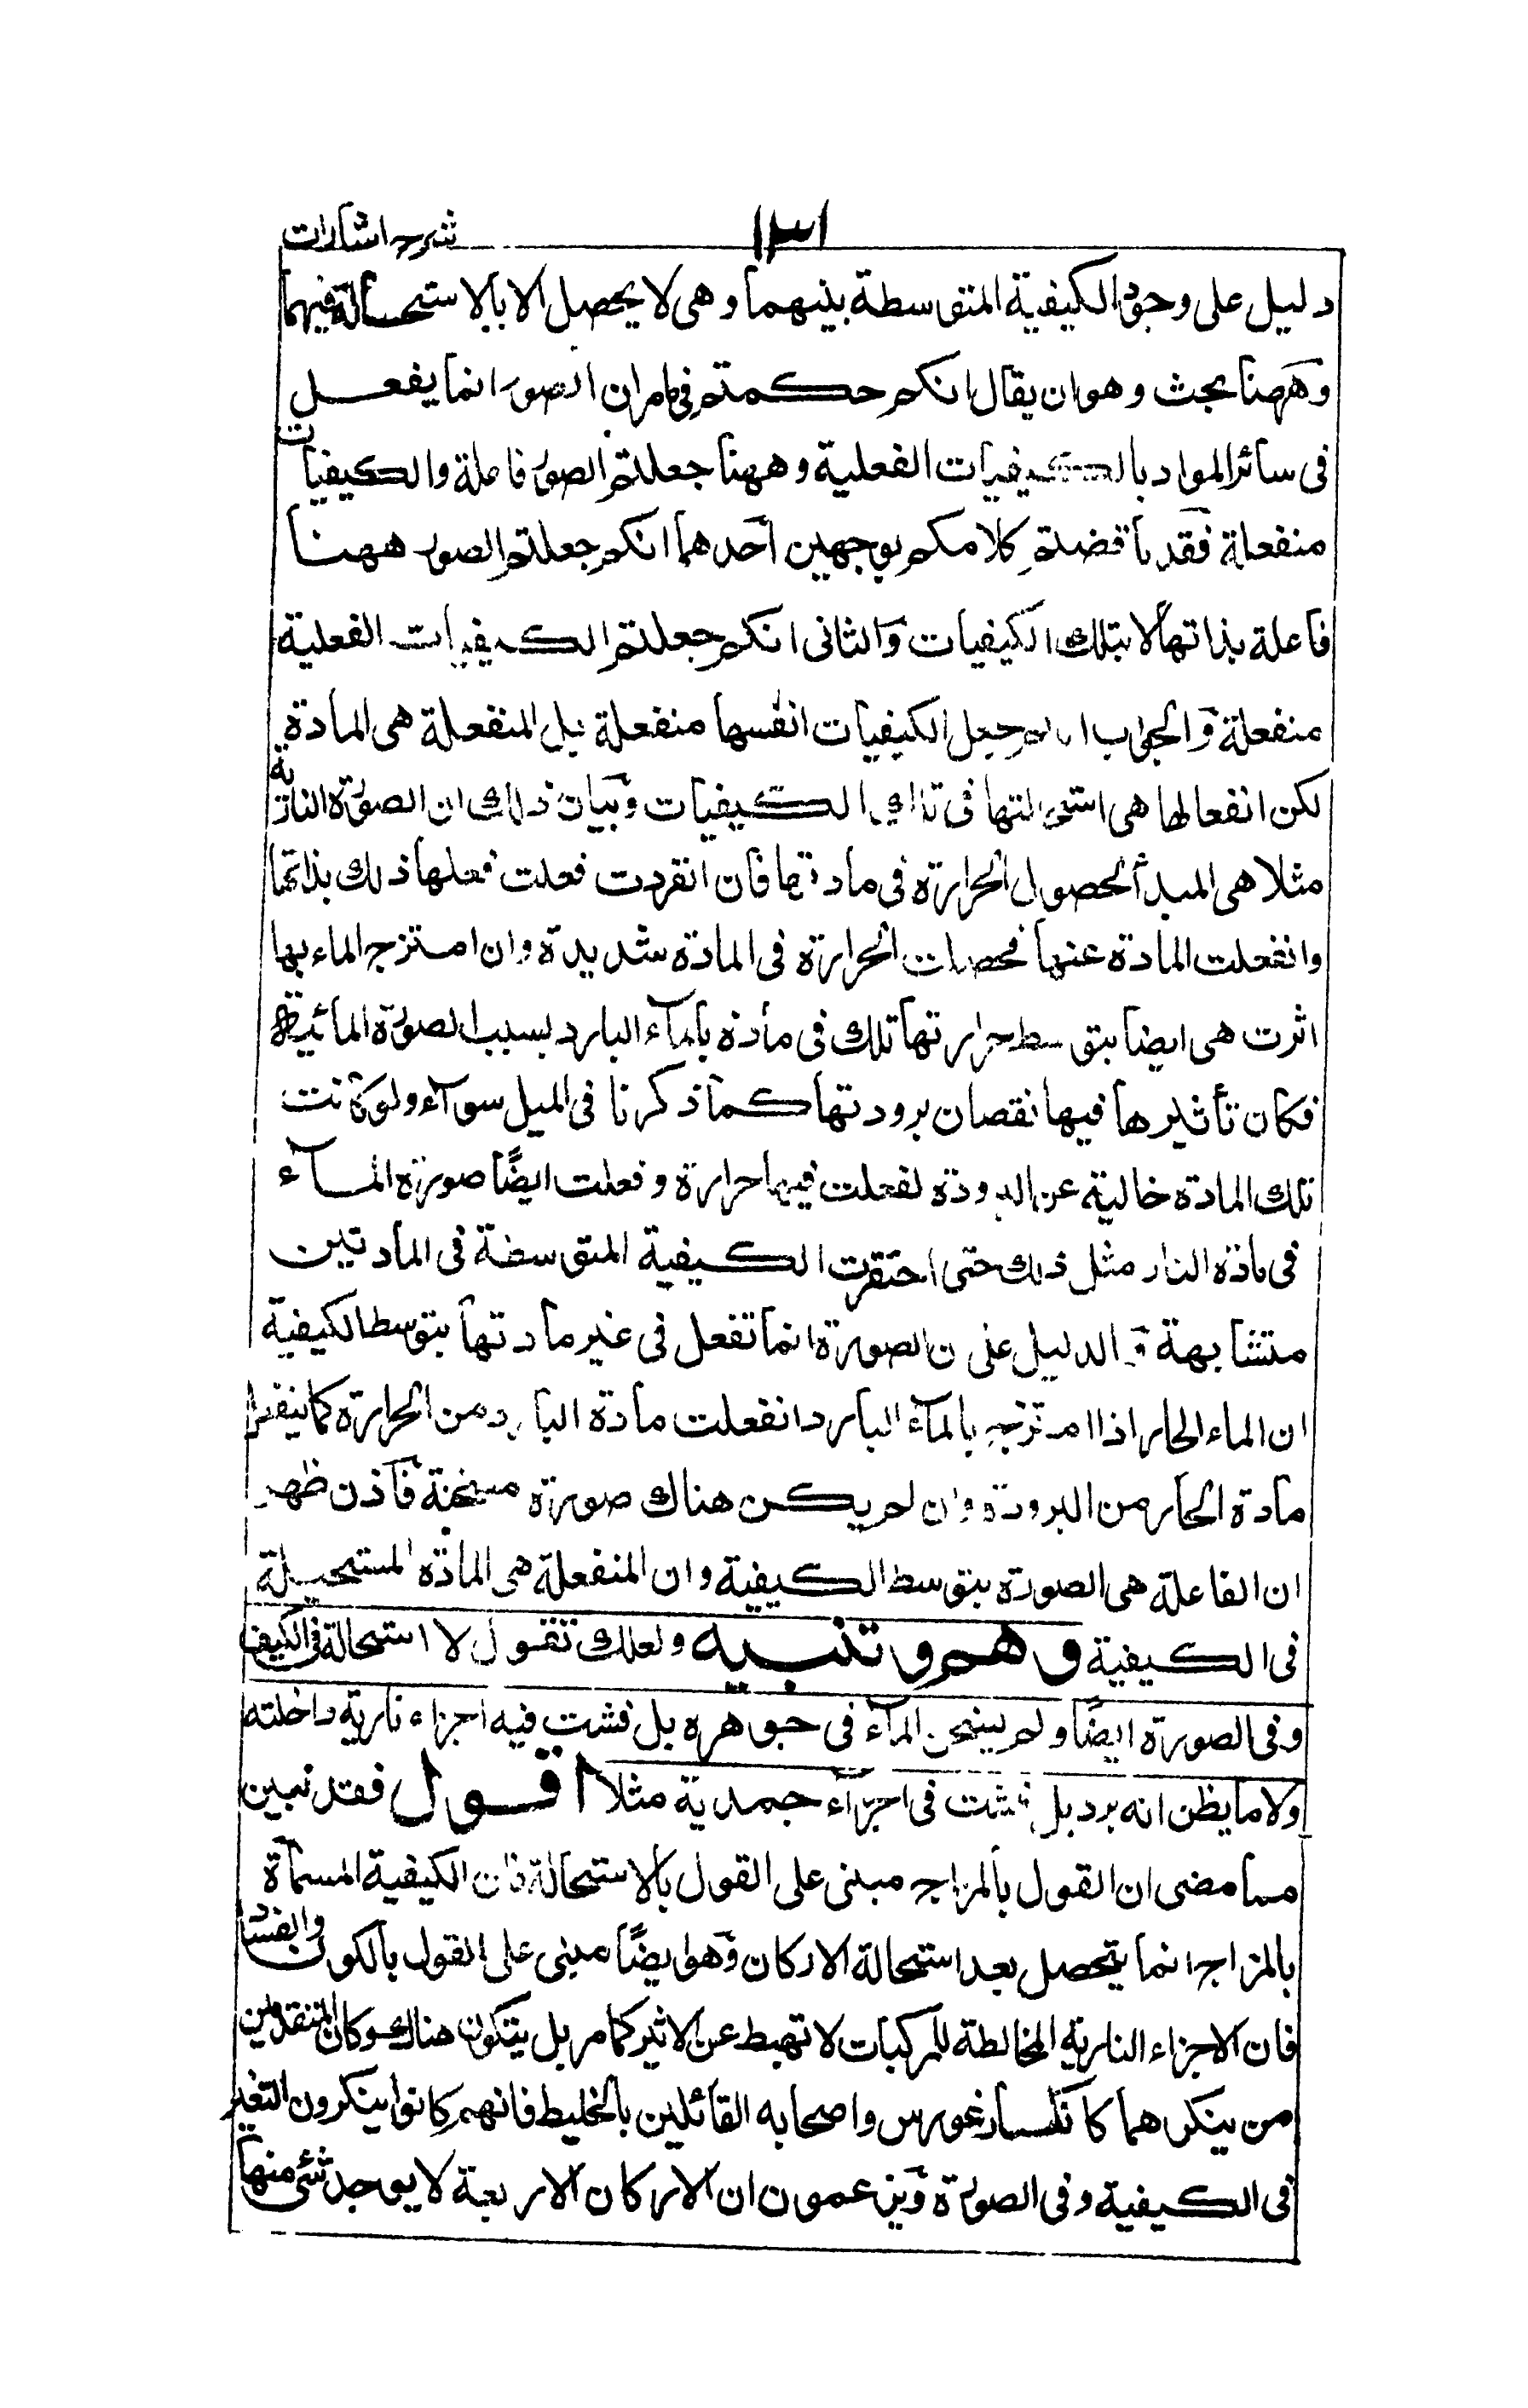 شرح اشارات
١٣١
دليل على وجود الكيفية المتوسطة بينهما وهى لا يحصل الا بالاستحالة فيهما
وههنا بحث وهو ان يقال انكم حكمتم فى مامر ان الصور انما يفعل
فى سائر المواد بالكيفيات الفعلية وههنا جعلتم الصور فاعلة والكيفيات
منفعلة فقد ناقضتم كلامكم بوجهين احدهما انكم جعلتم الصور ههنا
فاعلة بذاتها لا بتلك الكيفيات والثانى انكم جعلتم الكيفيات الفعلية
منفعلة والجواب انا لم جعل الكيفيات انفسها منفعلة بل المنفعلة هى المادة
لكن انفعالها هى استحالتها فى تلك الكيفيات وبيان ذلك ان الصورة النارية
مثلا هى المبدأ لحصول الحرارة فى مادتها فان انفردت فعلت فعلها ذلك بذاتها
وانفعلت المادة عنها فحصلت الحرارة فى المادة شديدة وان امتزج الماء بها
اثرت هى ايضا بتوسط حرارتها تلك فى مادة بالماء البارد بسبب الصورة المائية
فكان تأثيرها فيها نقصان برودتها كما ذكرنا فى الميل سواء ولو كانت
تلك المادة خالية عن البرودة لفعلت فيها حرارة وفعلت ايضًا صورة الماء
فى مادة النار مثل ذلك حتى استقرت الكيفية المتوسطة فى المادتين
متشابهة والدليل على ان الصورة انما تفعل فى غير مادتها بتوسط الكيفية
ان الماء الحار اذا امتزج بالماء البارد انفعلت مادة البارد من الحرارة كما ينفعل
مادة الحار من البرودة وان لم يكن هناك صورة مسخنة فاذن ظهر
ان الفاعلة هى الصورة بتوسط الكيفية وان المنفعلة هى المادة المستحيلة
فى الكيفية وهم وتنبيه ولعلك تقول لا استحالة فى الكيف
وفى الصورة ايضًا ولم يسخن الماء فى جوهره بل فشت فيه اجزاء نارية داخلته
ولا ما يظن انه برد بل فشت فى اجزاء جمدية مثلا اقول فقد تبين
مما مضى ان القول بالمزاج مبنى على القول بالاستحالة فان الكيفية المسماة
بالمزاج انما يتحصل بعد استحالة الاركان وهو ايضًا مبنى على القول بالكون والفساد
فان الاجزاء النارية المخالطة للمركبات لا تهبط عن الاثير كما مر بل يتكون هناك وكان المتقدمين
من ينكرهما كانكساغورس واصحابه القائلين بالخليط فانهم كانوا ينكرون التغير
فى الكيفية وفى الصورة ويزعمون ان الاركان الاربعة لا يوجد شئ منها